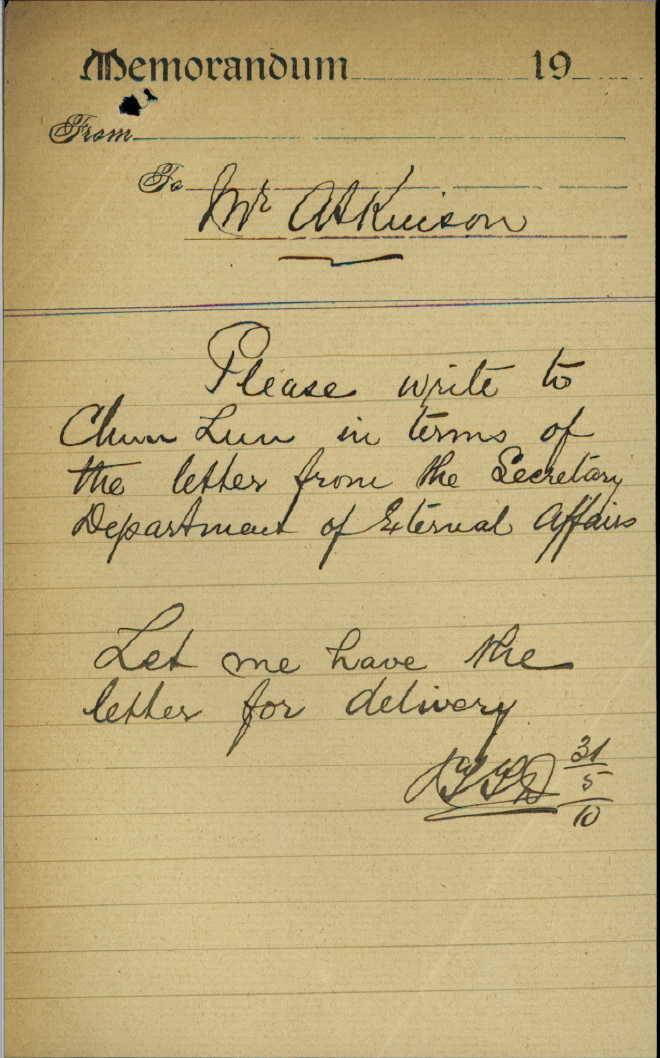 Memorandum 19
From
To
Mr Atkinson
Please write to
Chun Lun in terms of
the letter from the Secretary
Department of External Affairs
Let me have the
letter for delivery
31
5
10